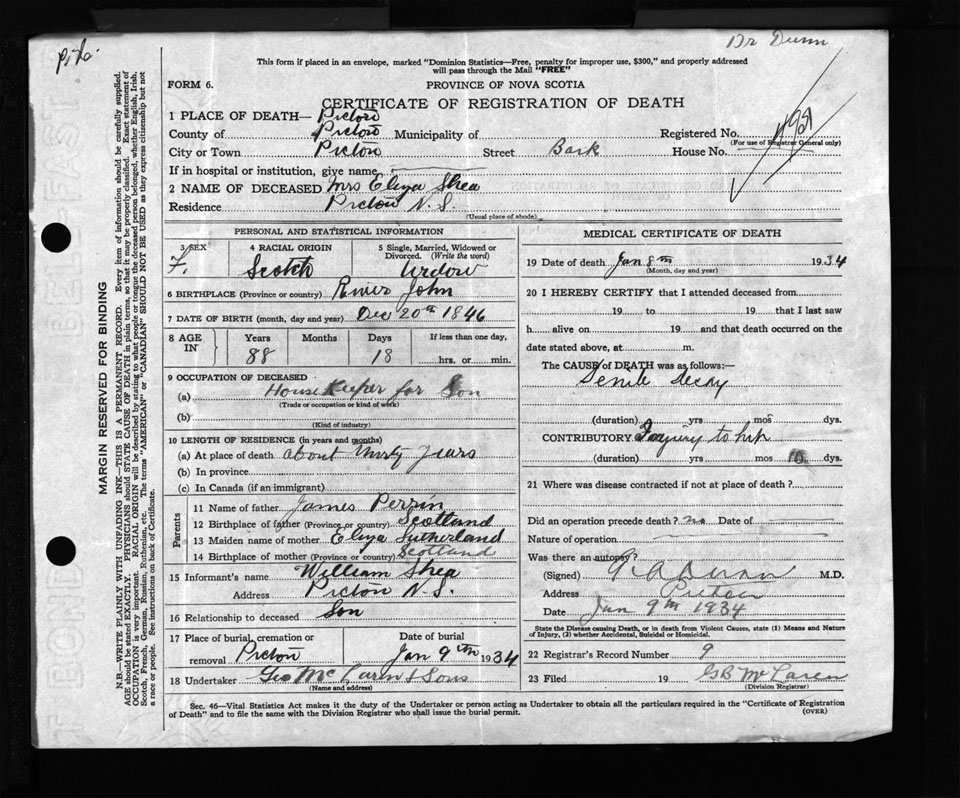 Dr Dunn
This form if placed in an envelope, marked "Dominion Statistics—Free, penalty for improper use, $300," and properly addressed
will pass through the Mail "FREE"
FORM 6.
PROVINCE OF NOVA SCOTIA
CERTIFICATE OF REGISTRATION OF DEATH
1 PLACE OF DEATH— Pictou
County of Pictou Municipality of Registered No.
(For use of Registrar General only)
City or Town Pictou Street Back House No.
If in hospital or institution, give name
2 NAME OF DECEASED Mrs Eliza Shea
Residence Pictou N.S.
(Usual place of abode)
PERSONAL AND STATISTICAL INFORMATION
3 SEX F. 4 RACIAL ORIGIN Scotch 5 Single, Married, Widowed or Divorced. (Write the word) Widow
6 BIRTHPLACE (Province or country) River John
7 DATE OF BIRTH (month, day and year) Dec 20th 1846
8 AGE IN Years 88 Months Days 18 If less than one day, hrs. or min.
9 OCCUPATION OF DECEASED
(a) House Keeper for Son
(Trade or occupation or kind of work)
(b)
(Kind of industry)
10 LENGTH OF RESIDENCE (in years and months)
(a) At place of death about thirty years
(b) In province
(c) In Canada (if an immigrant)
Parents
11 Name of father James Perrin
12 Birthplace of father (Province or country) Scotland
13 Maiden name of mother Eliza Sutherland
14 Birthplace of mother (Province or country) Scotland
15 Informant's name William Shea
Address Pictou N.S.
16 Relationship to deceased Son
17 Place of burial, cremation or removal Pictou Date of burial Jan 9th 1934
18 Undertaker Geo McLaren & Sons
(Name and address)
MEDICAL CERTIFICATE OF DEATH
19 Date of death Jan 8th 1934
(Month, day and year)
20 I HEREBY CERTIFY that I attended deceased from
19 to 19 that I last saw
h alive on 19 and that death occurred on the
date stated above, at m.
The CAUSE of DEATH was as follows:—
Senile decay
(duration) yrs mos dys.
CONTRIBUTORY Injury to hip
(duration) yrs mos 10 dys.
21 Where was disease contracted if not at place of death?
Did an operation precede death? no Date of
Nature of operation
Was there an autopsy?
(Signed) Dunn M.D.
Address Pictou
Date Jan 9th 1934
State the Disease causing Death, or in death from Violent Causes, state (1) Means and Nature
of Injury, (2) whether Accidental, Suicidal or Homicidal.
22 Registrar's Record Number 9
23 Filed 19 GB McLaren
(Division Registrar)
Sec. 46—Vital Statistics Act makes it the duty of the Undertaker or person acting as Undertaker to obtain all the particulars required in the "Certificate of Registration
of Death" and to file the same with the Division Registrar who shall issue the burial permit.
(OVER)
MARGIN RESERVED FOR BINDING
N.B.—WRITE PLAINLY WITH UNFADING INK—THIS IS A PERMANENT RECORD. Every item of information should be carefully supplied.
AGE should be stated EXACTLY. PHYSICIANS should STATE CAUSE OF DEATH in plain terms, so that it may be properly classified. Exact statement of
OCCUPATION is very important. RACIAL ORIGIN will be described by stating to what people or tongue the deceased person belonged, whether English, Irish,
Scotch, French, German, Russian, Ruthenian, etc. The terms "AMERICAN" or "CANADIAN" SHOULD NOT BE USED as they express citizenship but not
a race or people. See instructions on back of Certificate.